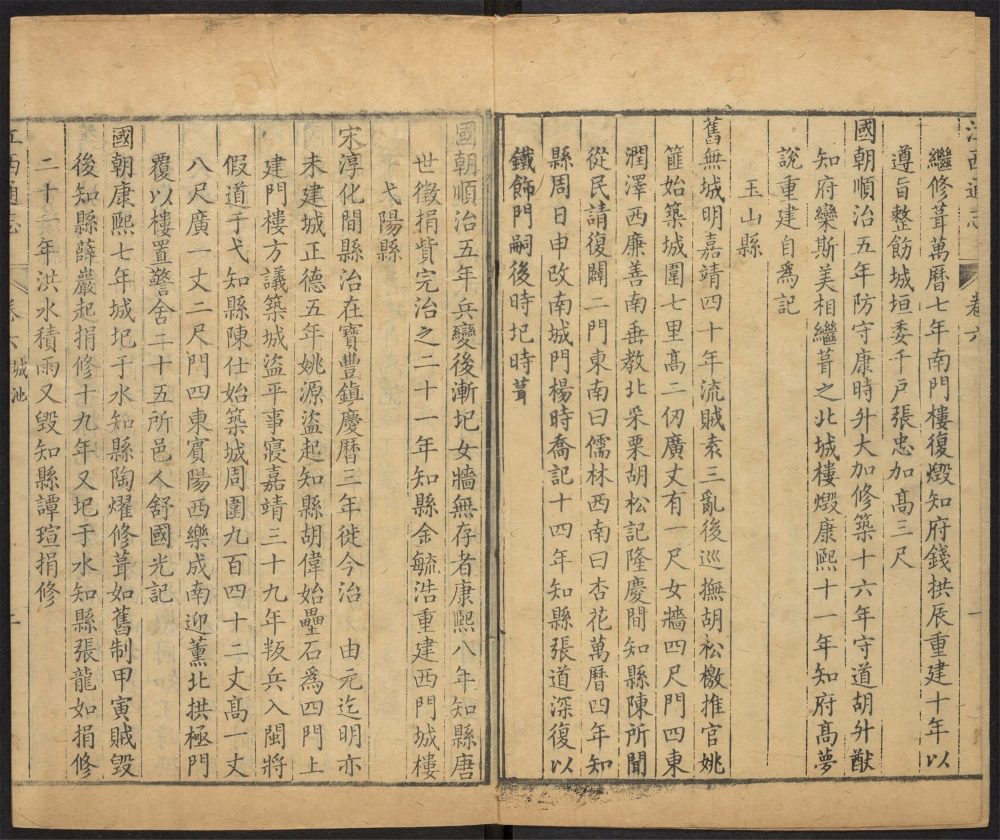 江西通志 卷六 一
繼修葺萬曆七年南門樓復燬知府錢拱辰重建十年以
遵旨整飭城垣委千戶張忠加高三尺
國朝順治五年防守康時升大加修築十六年守道胡升猷
知府欒斯美相繼葺之北城樓燬康熙十一年知府高夢
說重建自爲記
玉山縣
舊無城明嘉靖四十年流賊袁三亂後巡撫胡松檄推官姚
篚始築城圍七里高二仞廣丈有一尺女牆四尺門四東
潤澤西廉善南垂教北采栗胡松記隆慶間知縣陳所聞
從民請復闢二門東南曰儒林西南曰杏花萬曆四年知
縣周日申改南城門楊時喬記十四年知縣張道深復以
鐵飾門嗣後時圮時葺
國朝順治五年兵變後漸圮女牆無存者康熙八年知縣唐
世徵捐貲完治之二十一年知縣金毓浩重建西門城樓
弋陽縣
宋淳化間縣治在寶豐鎮慶曆三年徙今治 由元迄明亦
未建城正德五年姚源盜起知縣胡偉始壘石爲四門上
建門樓方議築城盜平事寢嘉靖三十九年叛兵入閩將
假道于弋知縣陳仕始築城周圍九百四十二丈高一丈
八尺廣一丈二尺門四東賓陽西樂成南迎薰北拱極門
覆以樓置警舍二十五所邑人舒國光記
國朝康熙七年城圮于水知縣陶燿修葺如舊制甲寅賊毀
後知縣薛巖起捐修十九年又圮于水知縣張龍如捐修
二十一年洪水積雨又毀知縣譚瑄捐修
江西通志 卷六 城池 二